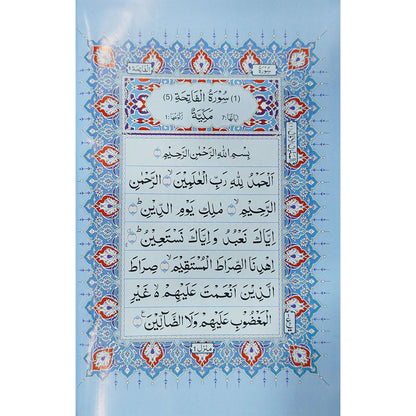 الفاتحة ١
سورة
(١) سُوْرَةُ الْفَاتِحَةِ (٥)
اٰيَاتُهَا ٧ مَكِّيَّةٌ رُكُوْعُهَا ١
بِسْمِ اللّٰهِ الرَّحْمٰنِ الرَّحِيْمِ
اَلْحَمْدُ لِلّٰهِ رَبِّ الْعٰلَمِيْنَ ۙ الرَّحْمٰنِ
الرَّحِيْمِ ۙ مٰلِكِ يَوْمِ الدِّيْنِ ؕ
اِيَّاكَ نَعْبُدُ وَاِيَّاكَ نَسْتَعِيْنُ ؕ
اِهْدِنَا الصِّرَاطَ الْمُسْتَقِيْمَ ۙ صِرَاطَ
الَّذِيْنَ اَنْعَمْتَ عَلَيْهِمْ ۙ غَيْرِ
الْمَغْضُوْبِ عَلَيْهِمْ وَلَا الضَّآلِّيْنَ
منزل ١